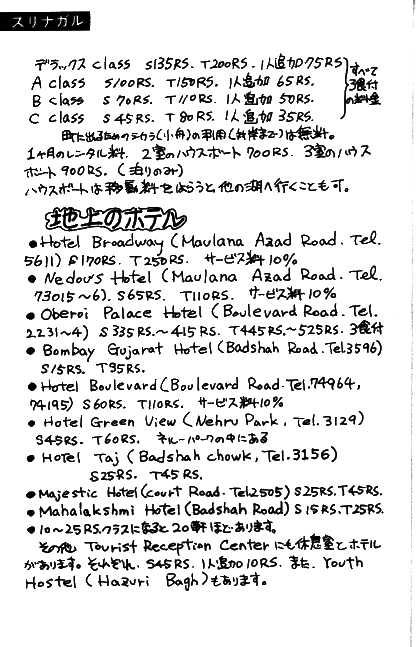 スリナガル
デラックス class S135RS. T200RS. 1人追加75RS
A class S100RS. T150RS. 1人追加 65RS.
B class S 70RS. T110RS. 1人追加 50RS.
C class S 45RS. T 80RS. 1人追加 35RS.
すべて
3食付
の料金
町に出るためのシカラ(小舟)の利用(対岸まで)は無料。
1ヶ月のレンタル料. 2室のハウスボート700RS. 3室のハウス
ボート900RS. (泊りのみ)
ハウスボートは移動料をはらうと他の湖へ行くことも可。
地上のホテル
● Hotel Broadway (Maulana Azad Road. Tel.
5611) S170RS. T250RS. サービス料10%
● Nedou's Hotel (Maulana Azad Road. Tel.
73015~6). S65RS. T110RS. サービス料10%
● Oberoi Palace Hotel (Boulevard Road. Tel.
2231~4) S335RS.~415RS. T445RS.~525RS. 3食付
● Bombay Gujarat Hotel (Badshah Road. Tel3596)
S15RS. T35RS.
● Hotel Boulevard (Boulevard Road. Tel.74964,
74195) S60RS. T110RS. サービス料10%
● Hotel Green View (Nehru Park, Tel.3129)
S45RS. T60RS. ネルーパークの中にある
● Hotel Taj (Badshah chowk, Tel.3156)
S25RS. T45RS.
● Majestic Hotel (court Road. Tel2505) S25RS. T45RS.
● Mahalakshmi Hotel (Badshah Road) S15RS. T25RS.
● 10~25RS.クラスになると20軒ほどあります。
その他 Tourist Reception Center にも休憩室とホテル
があります。それぞれ. S45RS. 1人追加10RS. また. Youth
Hostel (Hazuri Bagh)もあります。